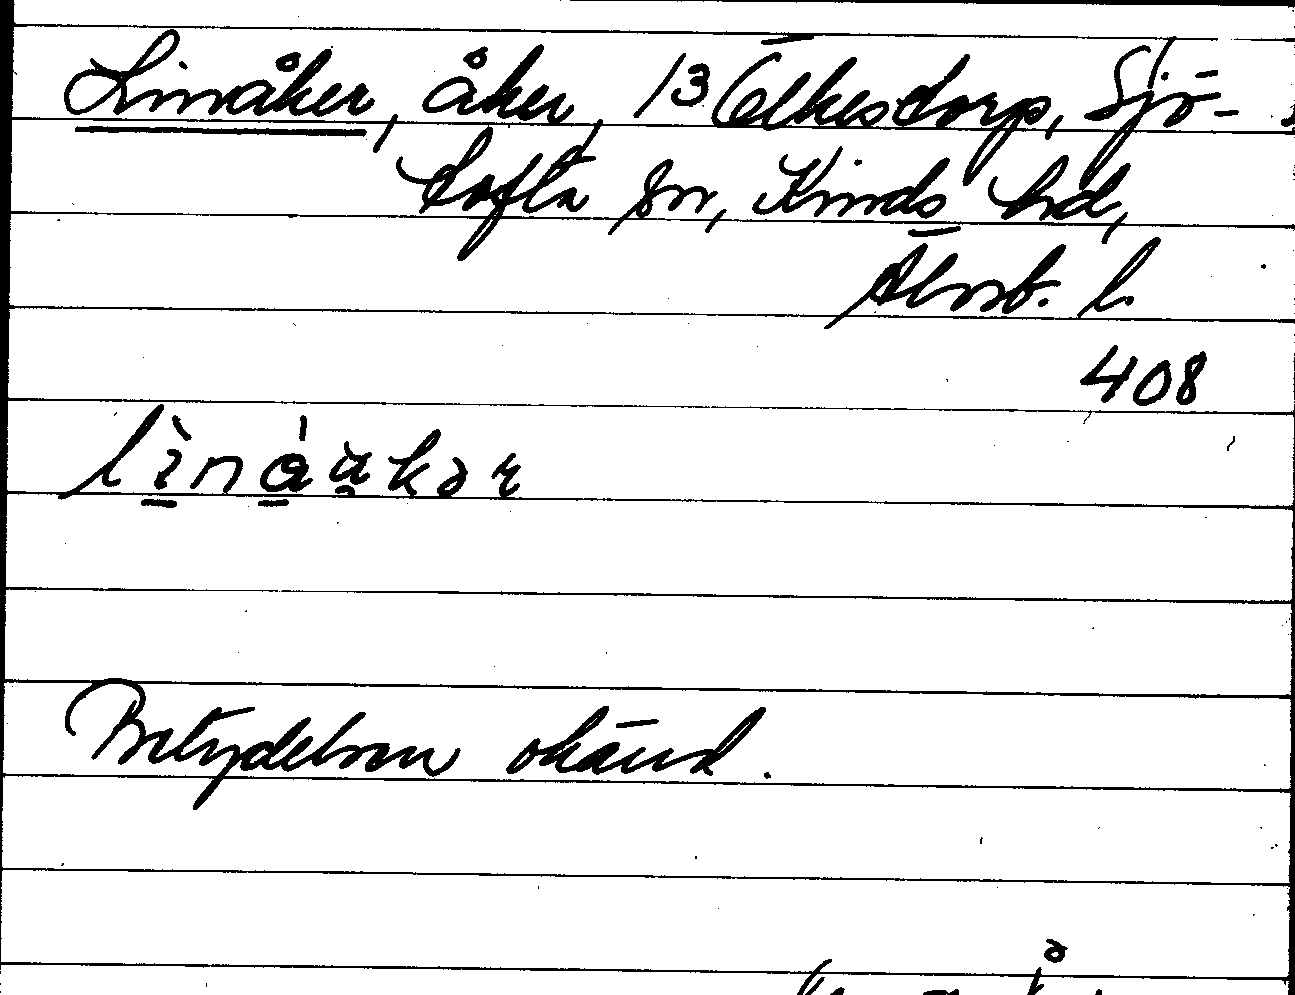 Linåker, åker, 13 Ölkesdorp, Sjö-
tofta sn, Kinds hd,
Älvsb. l.
408
Betydelsen okänd.